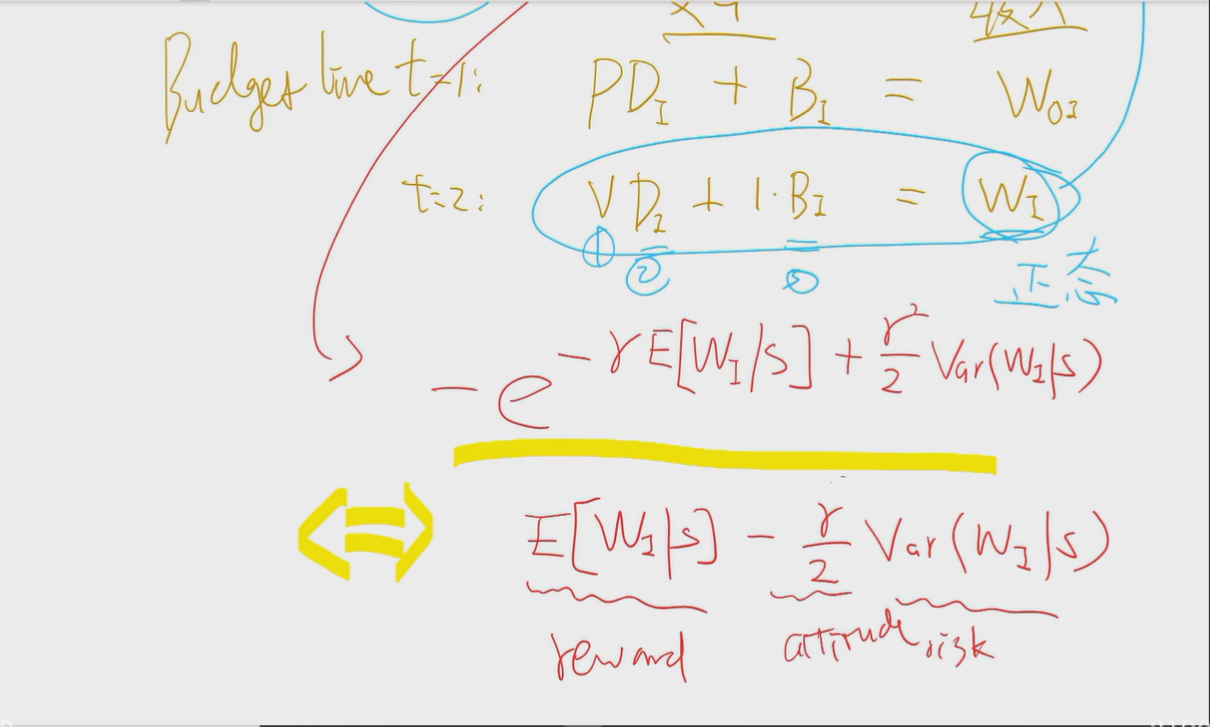 收入
Budget line t=1: PD_I + B_I = W_{0I}
t=2: VD_I + 1·B_I = W_I
① ② ③ 正态
-e^{-γE[W_I|s] + \frac{r^2}{2} Var(W_I|s)}
⇔ E[W_I|s] - \frac{γ}{2} Var(W_I|s)
reward attitude risk